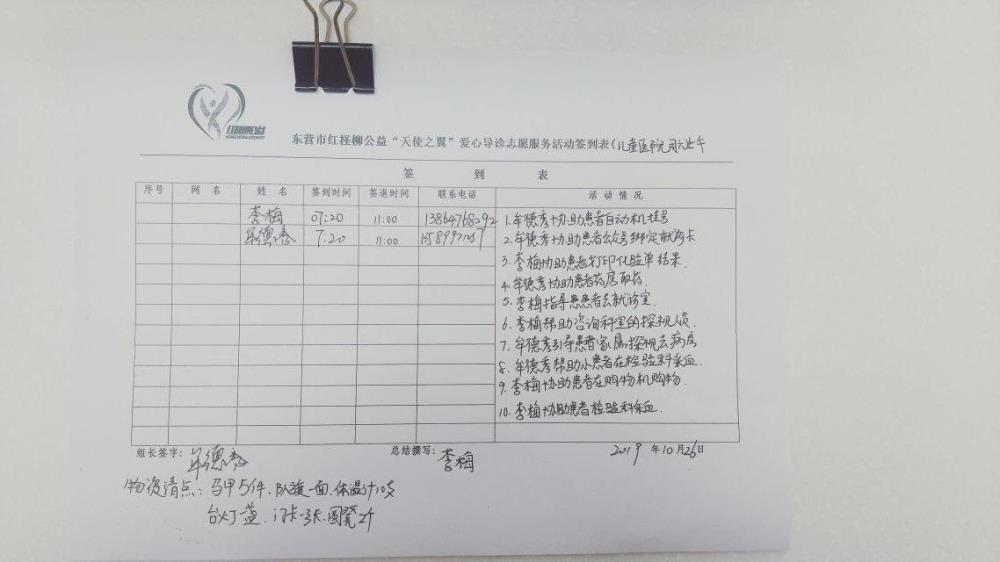 红柽柳
东营市红柽柳公益“天使之翼”爱心导诊志愿服务活动签到表(儿童医院周六上午
签 到 表
序号 网 名 姓 名 签到时间 签退时间 联系电话 活 动 情 况
李梅 07:20 11:00 13864768292
牟德秀 7:20 11:00
1.牟德秀协助患者自动机挂号
2.牟德秀协助患者公众号绑定就诊卡
3.李梅协助患者打印化验单结果.
4.牟德秀协助患者药房取药.
5.李梅指导患患者去就诊室.
6.李梅帮助咨询科室的探视人员.
7.牟德秀引导患者家属探视去病房
8.牟德秀帮助小患者在检验科采血.
9.李梅协助患者在购物机购物.
10.李梅协助患者检验科采血.
组长签字: 牟德秀 总结撰写: 李梅 2019 年10月26日
物资清点:马甲5件.队旗一面.体温计10支
台灯一盏.门卡一张.圆凳2个